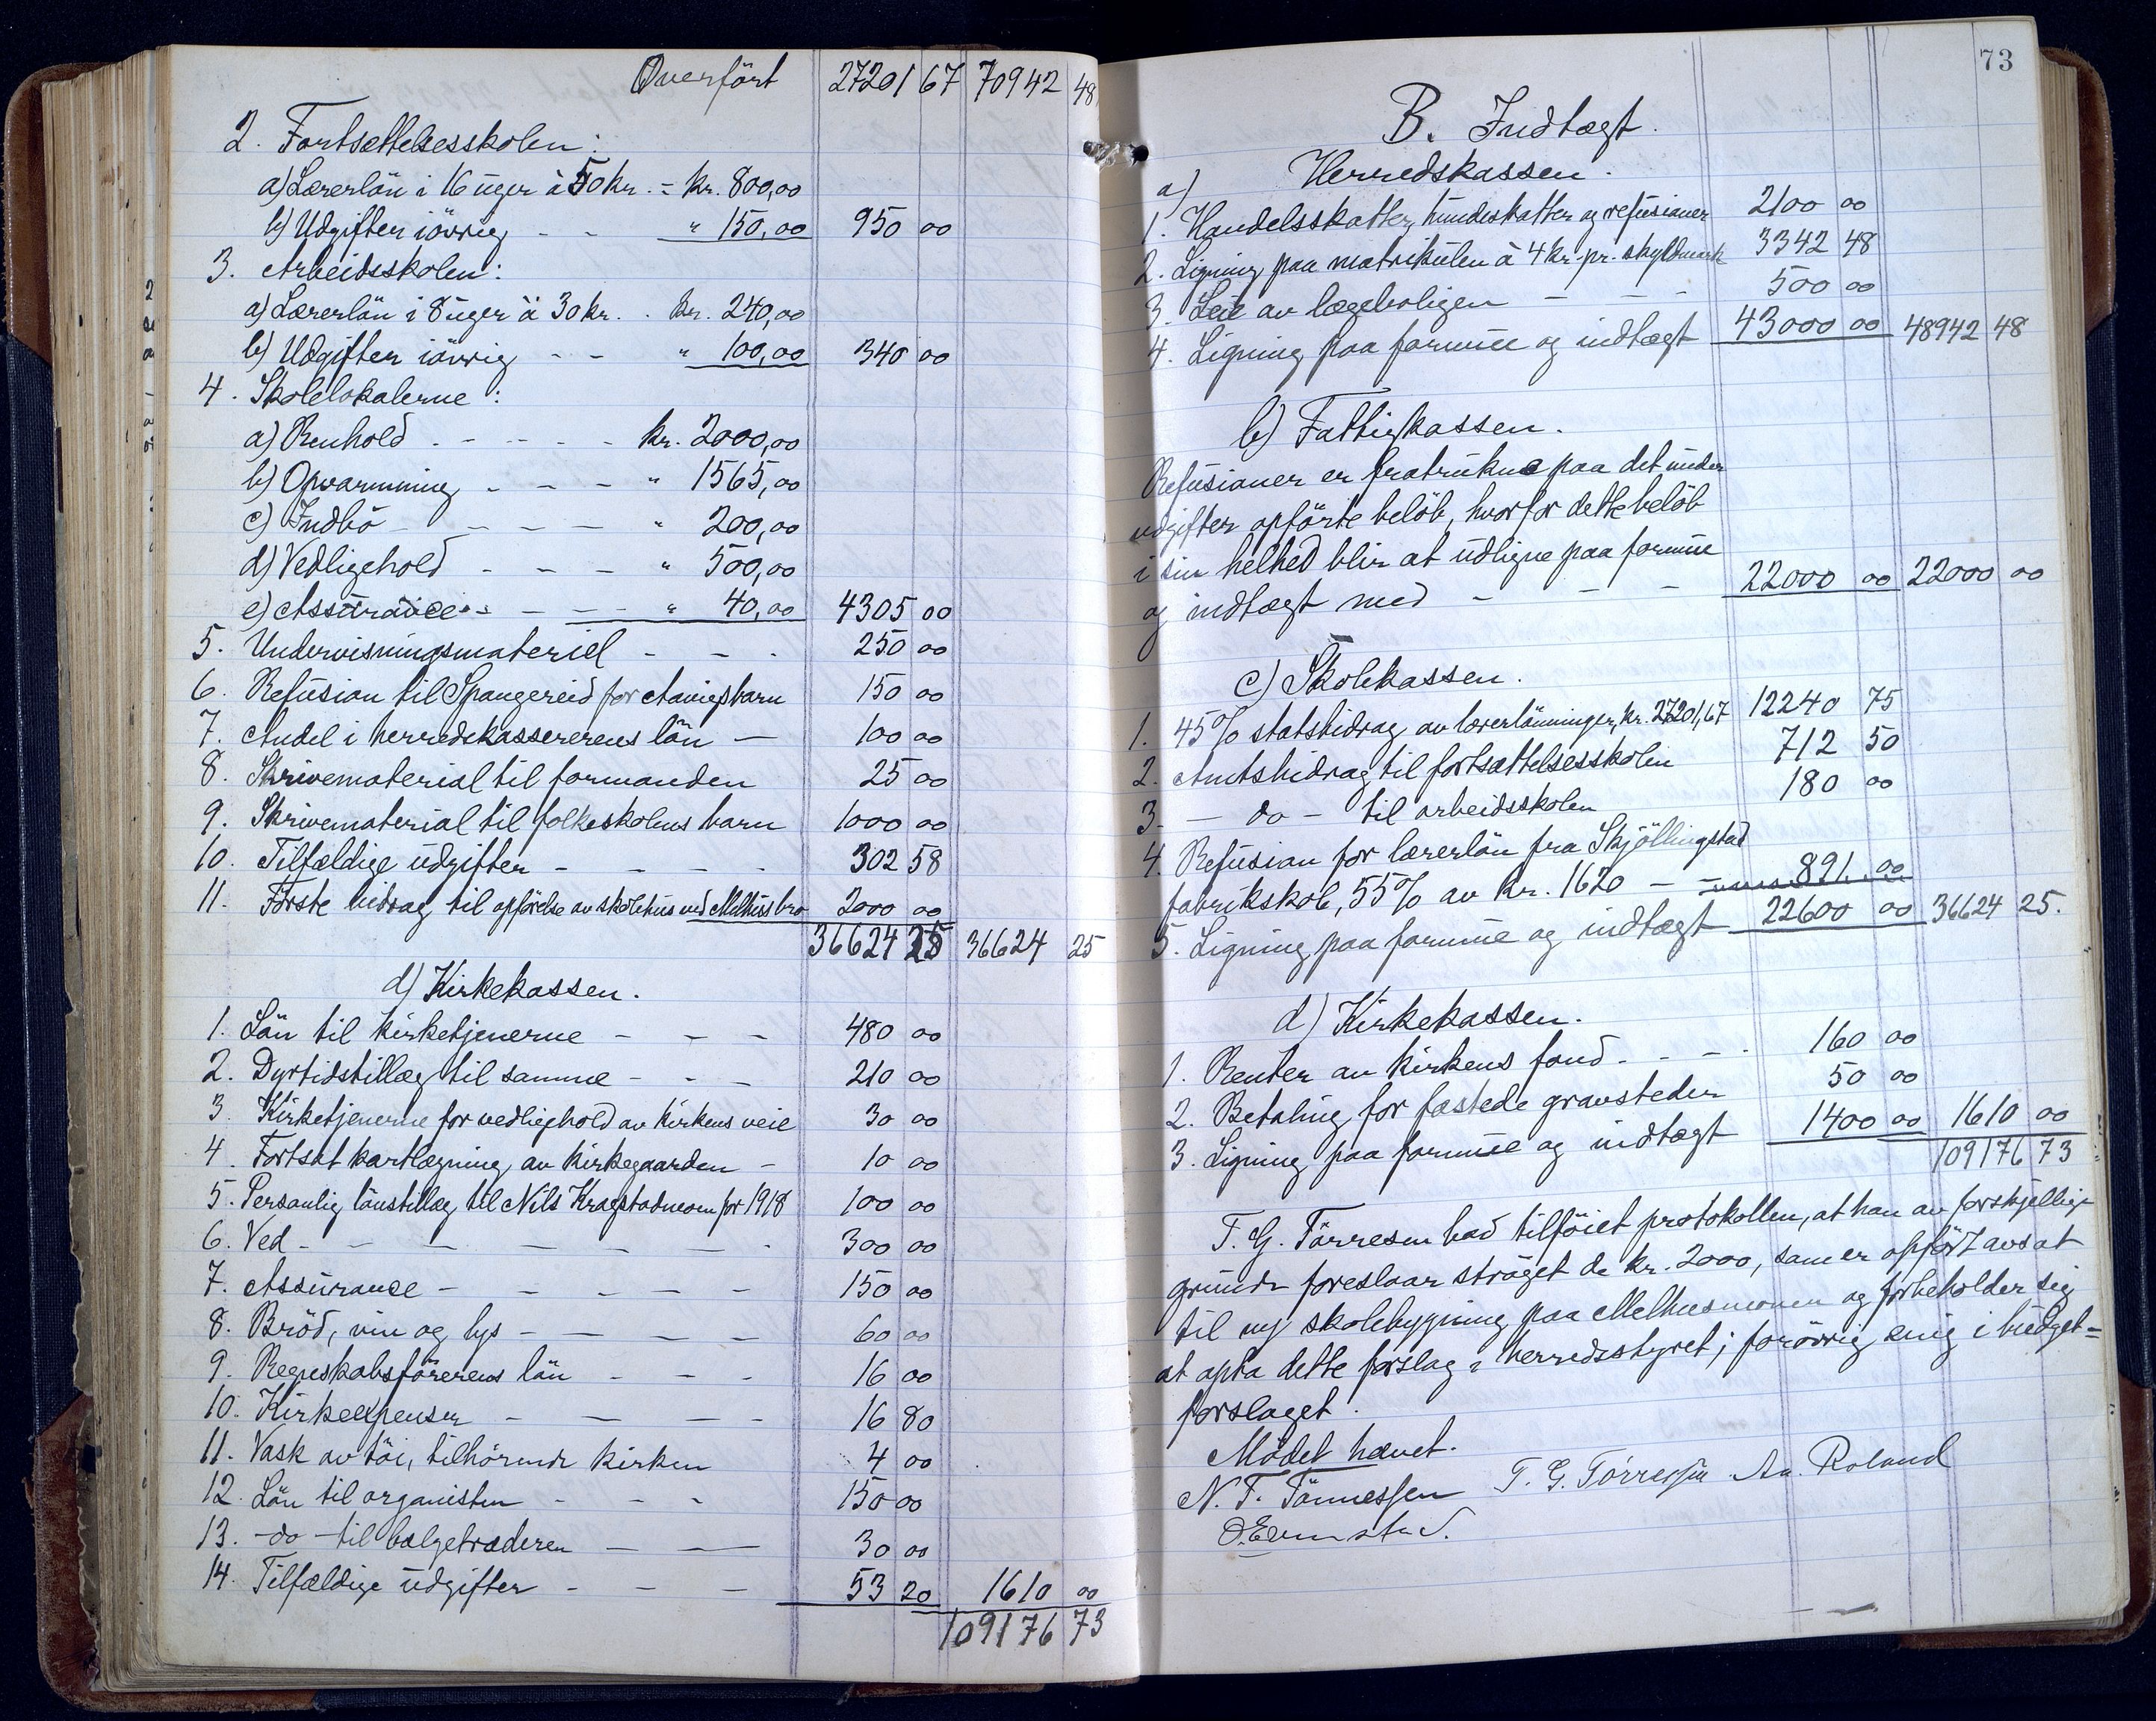 Overført 27201 67 70942 48
2. Fortsættelsesskolen:
a) Lærerlön i 16 uger à 50 kr. = kr. 800,00
b) Udgifter iövrig - - " 150,00 950 00
3. Arbeidsskolen:
a) Lærerlön i 8 uger à 30 kr. . kr. 240,00
b) Udgifter iövrig - - " 100,00 340 00
4. Skolelokalerne:
a) Renhold - - - - - kr. 2000,00
b) Opvarmning - - - " 1565,00
c) Indbo - - - - - " 200,00
d) Vedligehold - - - " 500,00
e) Assurance - - - - " 40,00 4305 00
5. Undervisningsmateriel - - - 250 00
6. Refusion til Spangereid for barn 150 00
7. Andel i herredskassererens lön — 100 00
8. Skrivematerial til formanden 25 00
9. Skrivematerial til folkeskolens barn 1000 00
10. Tilfældige udgifter - - - - 302 58
11. Förste bidrag til opförelse av skolehus ved 2000 00
36624 25 36624 25
d) Kirkekassen.
1. Lön til kirketjenerne - - - 480 00
2. Dyrtidstillæg til samme - - - 210 00
3. Kirketjenerne for vedligehold av kirkens veie 30 00
4. Fortsat kartlægning av kirkegaarden - 10 00
5. Personlig lönstillæg til Nils Kragstadmoen for 1918 100 00
6. Ved - - - - - - - 300 00
7. Assurance - - - - - - 150 00
8. Bröd, vin og lys - - - - 60 00
9. Regnskabsförerens lön - - - 16 00
10. Kirkeexpenser - - - - 16 80
11. Vask av töi, tilhörende kirken 4 00
12. Lön til organisten - - - 150 00
13. - do - til bælgetræderen - - 30 00
14. Tilfældige udgifter - - - 53 20 1610 00
109176 73
73
B. Indtægt.
a) Herredskassen.
1. Handelsskatter, hundeskatter og refusioner 2100 00
2. Ligning paa matrikulen à 4 kr. pr. skyldmark 3342 48
3. Leie av lægeboligen - - - 500 00
4. Ligning paa formue og indtægt 43000 00 48942 48
b) Fattigkassen.
Refusioner er fratrukne paa det under
udgifter opförte belöb, hvorfor dette belöb
i sin helhed blir at udligne paa formue
og indtægt med - - - 22000 00 22000 00
c) Skolekassen.
1. 45% statsbidrag av lærerlönninger, kr. 27201,67 12240 75
2. Amtsbidrag til fortsættelsesskolen 712 50
3. - do - til arbeidsskolen 180 00
4. Refusion for lærerlön fra Skjöllingstad
fabrikskole, 55% av kr. 1620 - - 891 00
5. Ligning paa formue og indtægt 22600 00 36624 25.
d) Kirkekassen.
1. Renter av kirkens fond - - - 160 00
2. Betaling for fæstede gravsteder 50 00
3. Ligning paa formue og indtægt 1400 00 1610 00
109176 73
T. G. Törresen bad tilföiet protokollen, at han av forskjellige
grunde foreslaar ströget de kr. 2000, som er opfört avsat
til ny skolebygning paa Melhusmoen og forbeholder sig
at opta dette forslag i herredsstyret; forövrig enig i budget=
forslaget.
Mödet hævet.
N. T. Tönnessen T. G. Törressen An. Roland